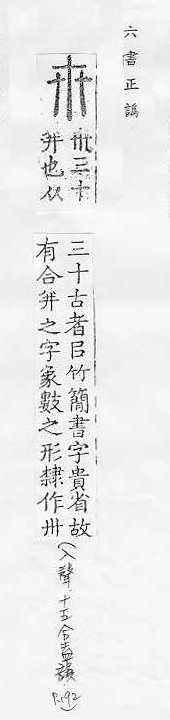 六書正譌
卅
卅三十
幷也从
三十古者㠯竹簡書字貴省故
有合幷之字象數之形隸作卅
(入聲.十五合盍韻.